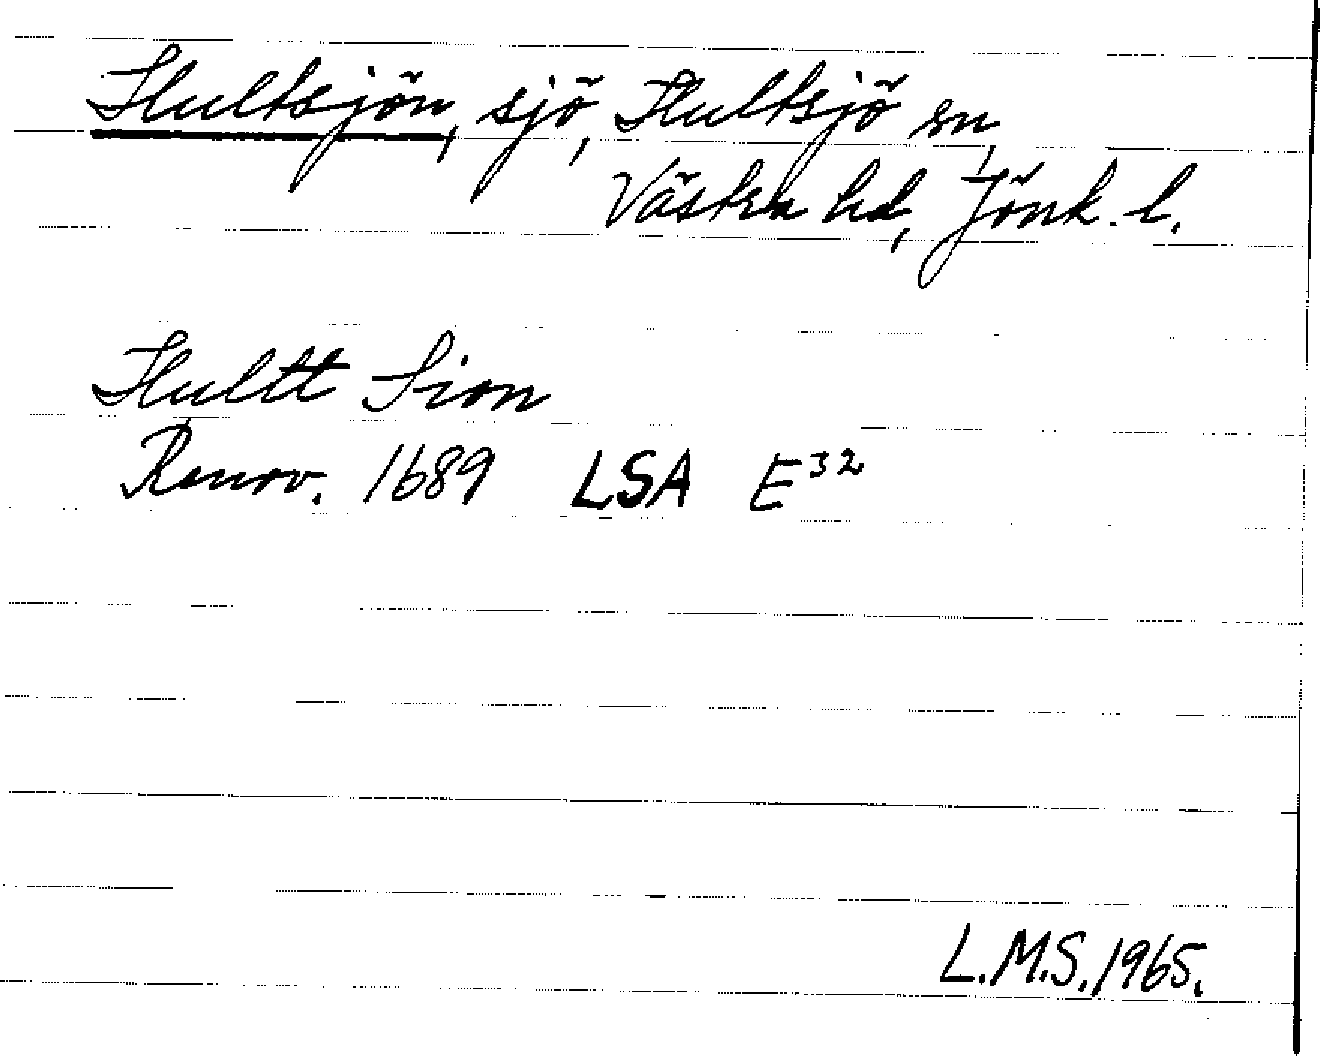 Hultsjön, sjö, Hultsjö sn,
Västra hd, Jönk. l.
Hultt Siön
Renov. 1689 LSA E³²
L.M.S. 1965.